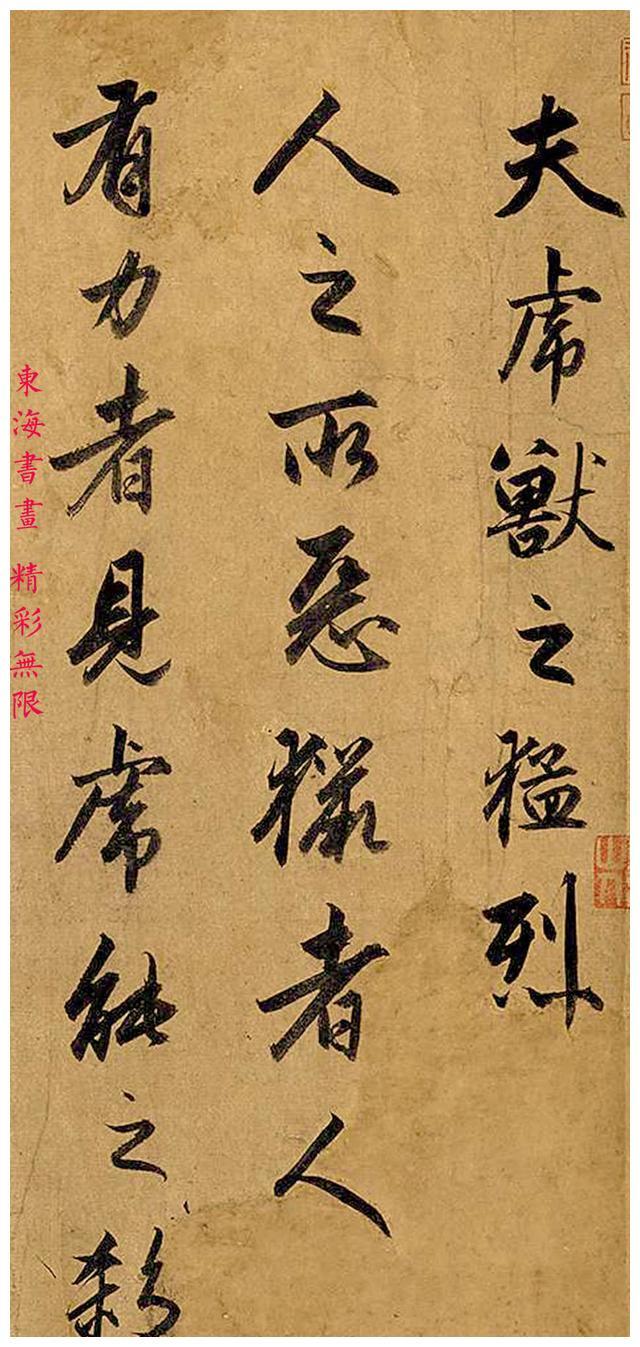 夫虎獸之猛烈
人之所惡獵者人
有力者見虎能之
東海書畫 精彩無限